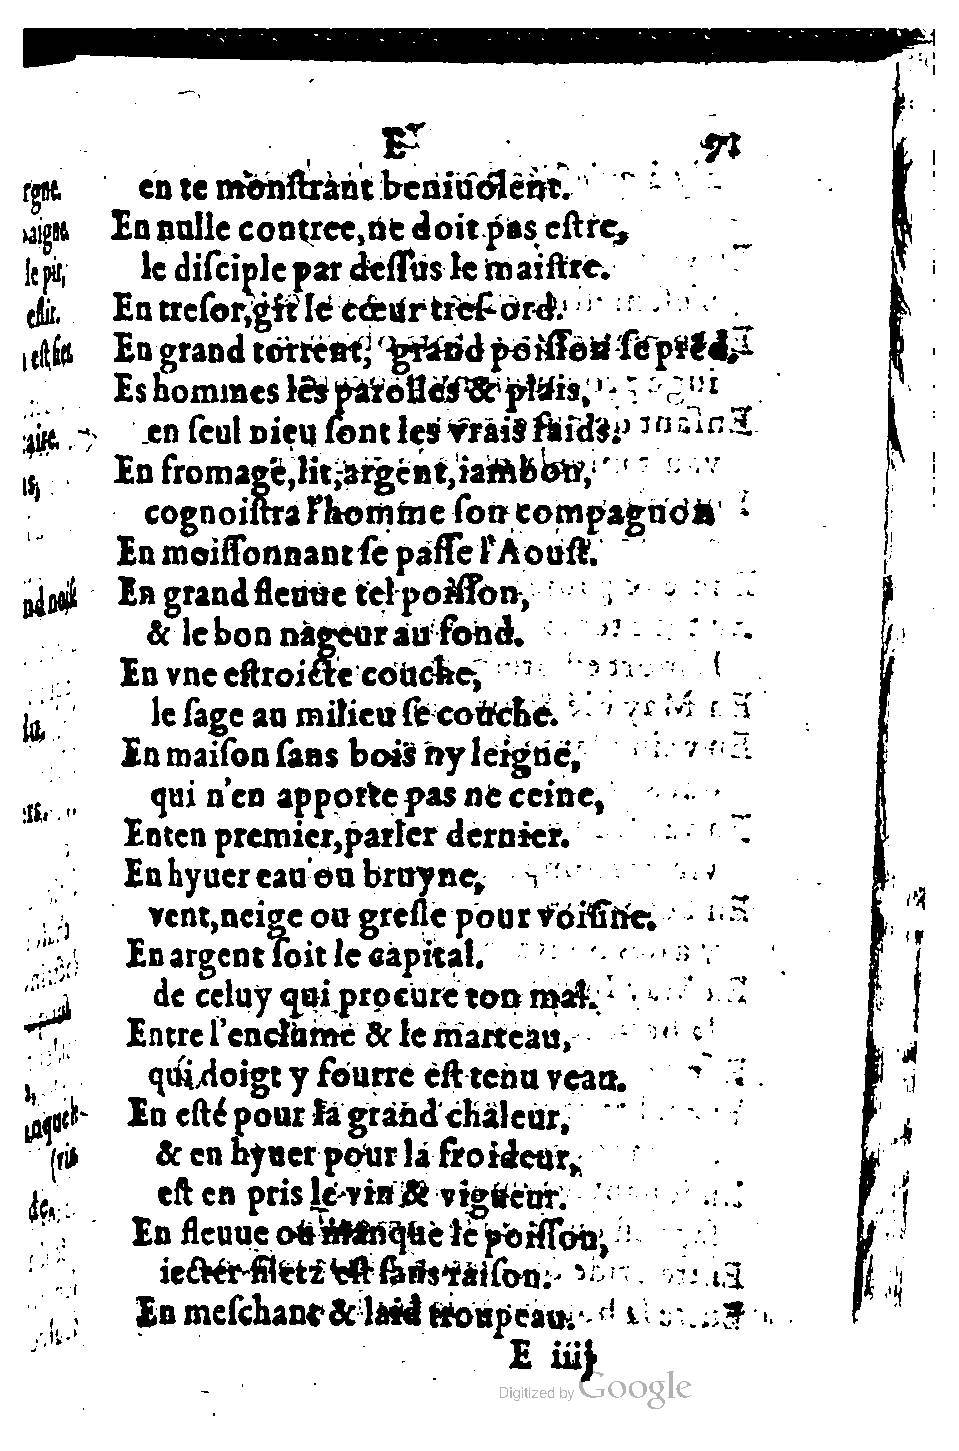 E 71
en te monſtrant beniuolent.
En nulle contree, ne doit pas eſtre,
le diſciple par deſſus le maiſtre.
En treſor, giſt le cœur treſ-ord.
En grand torrent, grand poiſſon ſe prēd.
Es hommes les parolles & plais,
en ſeul Dieu ſont les vrais faids.
En fromage, lit, argent, iambon,
cognoiſtra l'homme ſon compagnon
En moiſſonnant ſe paſſe l'Aouſt.
En grand fleuue tel poiſſon,
& le bon nageur au fond.
En vne eſtroicte couche,
le ſage au milieu ſe couche.
En maiſon ſans bois ny leigne,
qui n'en apporte pas ne ceine,
Enten premier, parler dernier.
En hyuer eau ou bruyne,
vent, neige ou greſle pour voiſine.
En argent ſoit le capital.
de celuy qui procure ton mal.
Entre l'enclume & le marteau,
qui doigt y fourre eſt tenu veau.
En eſté pour la grand chaleur,
& en hyuer pour la froideur,
eſt en pris le vin & vigueur.
En fleuue ou manque le poiſſon,
iecter filetz eſt ſans raiſon.
En meſchant & laid troupeau.
E iiij
Digitized by Google